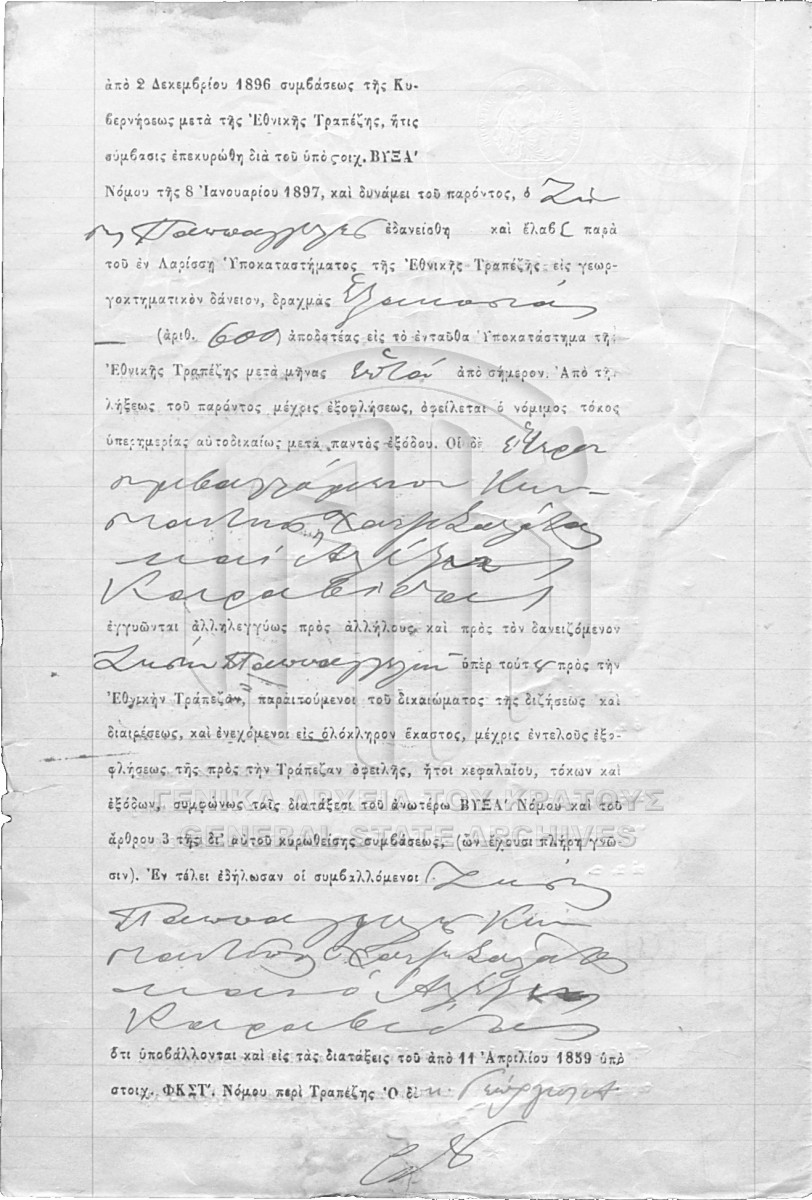 ἀπὸ 2 Δεκεμβρίου 1896 συμβάσεως τῆς Κυ-
βερνήσεως μετὰ τῆς Ἐθνικῆς Τραπέζης, ἥτις
σύμβασις ἐπεκυρώθη διὰ τοῦ ὑπὸ στοιχ. ΒΥΞΑ'
Νόμου τῆς 8 Ἰανουαρίου 1897, καὶ δυνάμει τοῦ παρόντος, ὁ Ζή
σης ἐδανείσθη καὶ ἔλαβε παρὰ
τοῦ ἐν Λαρίσσῃ Ὑποκαταστήματος τῆς Ἐθνικῆς Τραπέζης εἰς γεωρ-
γοκτηματικὸν δάνειον, δραχμὰς Ἑξακοσίας
(ἀριθ. 600) ἀποδοτέας εἰς τὸ ἐνταῦθα Ὑποκατάστημα τῆς
Ἐθνικῆς Τραπέζης μετὰ μῆνας ἀπὸ σήμερον. Ἀπὸ τῆς
λήξεως τοῦ παρόντος μέχρις ἐξοφλήσεως, ὀφείλεται ὁ νόμιμος τόκος
ὑπερημερίας αὐτοδικαίως μετὰ παντὸς ἐξόδου. Οἱ δὲ ἕτεροι
συμβαλλόμενοι Κων-
σταντῖνος
καὶ
ἐγγυῶνται ἀλληλεγγύως πρὸς ἀλλήλους καὶ πρὸς τὸν δανειζόμενον
Ζήσην ὑπὲρ τούτου πρὸς τὴν
Ἐθνικὴν Τράπεζαν, παραιτούμενοι τοῦ δικαιώματος τῆς διζήσεως καὶ
διαιρέσεως, καὶ ἐνεχόμενοι εἰς ὁλόκληρον ἕκαστος, μέχρις ἐντελοῦς ἐξο-
φλήσεως τῆς πρὸς τὴν Τράπεζαν ὀφειλῆς, ἤτοι κεφαλαίου, τόκων καὶ
ΓΕΝΙΚΑ ΑΡΧΕΙΑ ΤΟΥ ΚΡΑΤΟΥΣ
ἐξόδων, συμφώνως ταῖς διατάξεσι τοῦ ἀνωτέρω ΒΥΞΑ' Νόμου καὶ τοῦ
GENERAL STATE ARCHIVES
ἄρθρου 3 τῆς δι' αὐτοῦ κυρωθείσης συμβάσεως, (ὧν ἔχουσι πλήρη γνῶ-
σιν). Ἐν τέλει ἐδήλωσαν οἱ συμβαλλόμενοι Ζήσης
Κων
σταντῖνος
καὶ ὁ
ὅτι ὑποβάλλονται καὶ εἰς τὰς διατάξεις τοῦ ἀπὸ 11 Ἀπριλίου 1859 ὑπὸ
στοιχ. ΦΚΣΤ'. Νόμου περὶ Τραπέζης Ὁ δὲ